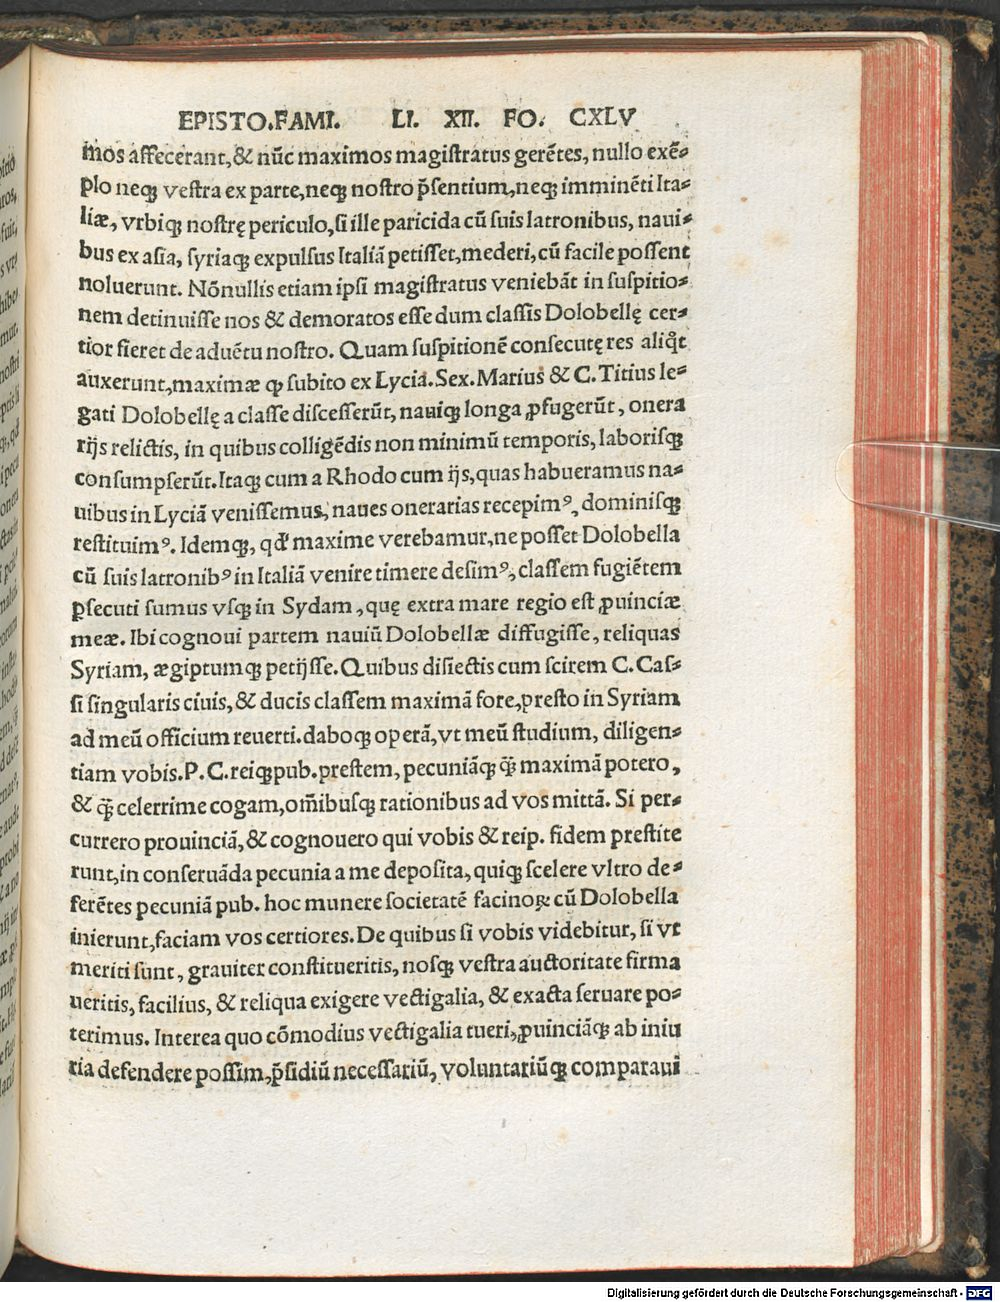 EPISTO.FAMI. LI. XII. FO. CXLV
mos affecerant,& nūc maximos magiſtratus gerētes, nullo exē-
plo neqꝫ veſtra ex parte,neqꝫ noſtro p̄ſentium,neqꝫ imminēti Ita-
liæ, vrbiqꝫ noſtrę periculo,ſi ille paricida cū ſuis latronibus, naui-
bus ex aſia, ſyriaqꝫ expulſus Italiā petiſſet,mederi,cū facile poſſent
noluerunt. Nōnullis etiam ipſi magiſtratus veniebāt in ſuſpitio-
nem detinuiſſe nos & demoratos eſſe dum claſſis Dolobellę cer-
tior fieret de aduētu noſtro. Quam ſuſpitionē conſecutę res aliqͦt
auxerunt,maximæ ꝙ ſubito ex Lycia.Sex.Marius & C.Titius le-
gati Dolobellę a claſſe diſceſſerūt, nauiqꝫ longa ꝓfugerūt, onera
rijs relictis, in quibus colligēdis non minimū temporis, laboriſqꝫ
conſumpſerūt.Itaqꝫ cum a Rhodo cum ijs,quas habueramus na-
uibus in Lyciā veniſſemus, naues onerarias recepimꝰ, dominiſqꝫ
reſtituimꝰ. Idemqꝫ, qđ maxime verebamur,ne poſſet Dolobella
cū ſuis latronibꝰ in Italiā venire timere deſimꝰ, claſſem fugiētem
ꝑſecuti ſumus vſqꝫ in Sydam, quę extra mare regio eſt ꝓuinciæ
meæ. Ibi cognoui partem nauiū Dolobellæ diffugiſſe, reliquas
Syriam, ægiptumqꝫ petijſſe.Quibus diſiectis cum ſcirem C.Caſ-
ſi ſingularis ciuis,& ducis claſſem maximā fore,preſto in Syriam
ad meū officium reuerti.daboqꝫ operā,vt meū ſtudium, diligen-
tiam vobis.P.C.reiqꝫpub.preſtem, pecuniāqꝫ q̄ꝫ maximā potero,
& q̄ꝫ celerrime cogam,om̄ibuſqꝫ rationibus ad vos mittā. Si per-
currero prouinciā, & cognouero qui vobis & reip. fidem preſtite
runt,in conſeruāda pecunia a me depoſita, quiqꝫ ſcelere vltro de-
ferētes pecuniā pub. hoc munere ſocietatē facinoꝝ cū Dolobella
inierunt,faciam vos certiores.De quibus ſi vobis videbitur, ſi vt
meriti ſunt, grauiter conſtitueritis, noſqꝫ veſtra auctoritate firma
ueritis, facilius, & reliqua exigere vectigalia, & exacta ſeruare po-
terimus. Interea quo cōmodius vectigalia tueri,ꝓuinciāqꝫ ab iniu
ria defendere poſſim,p̄ſidiū neceſſariū, voluntariūqꝫ comparaui
Digitalisierung gefördert durch die Deutsche Forschungsgemeinschaft - DFG